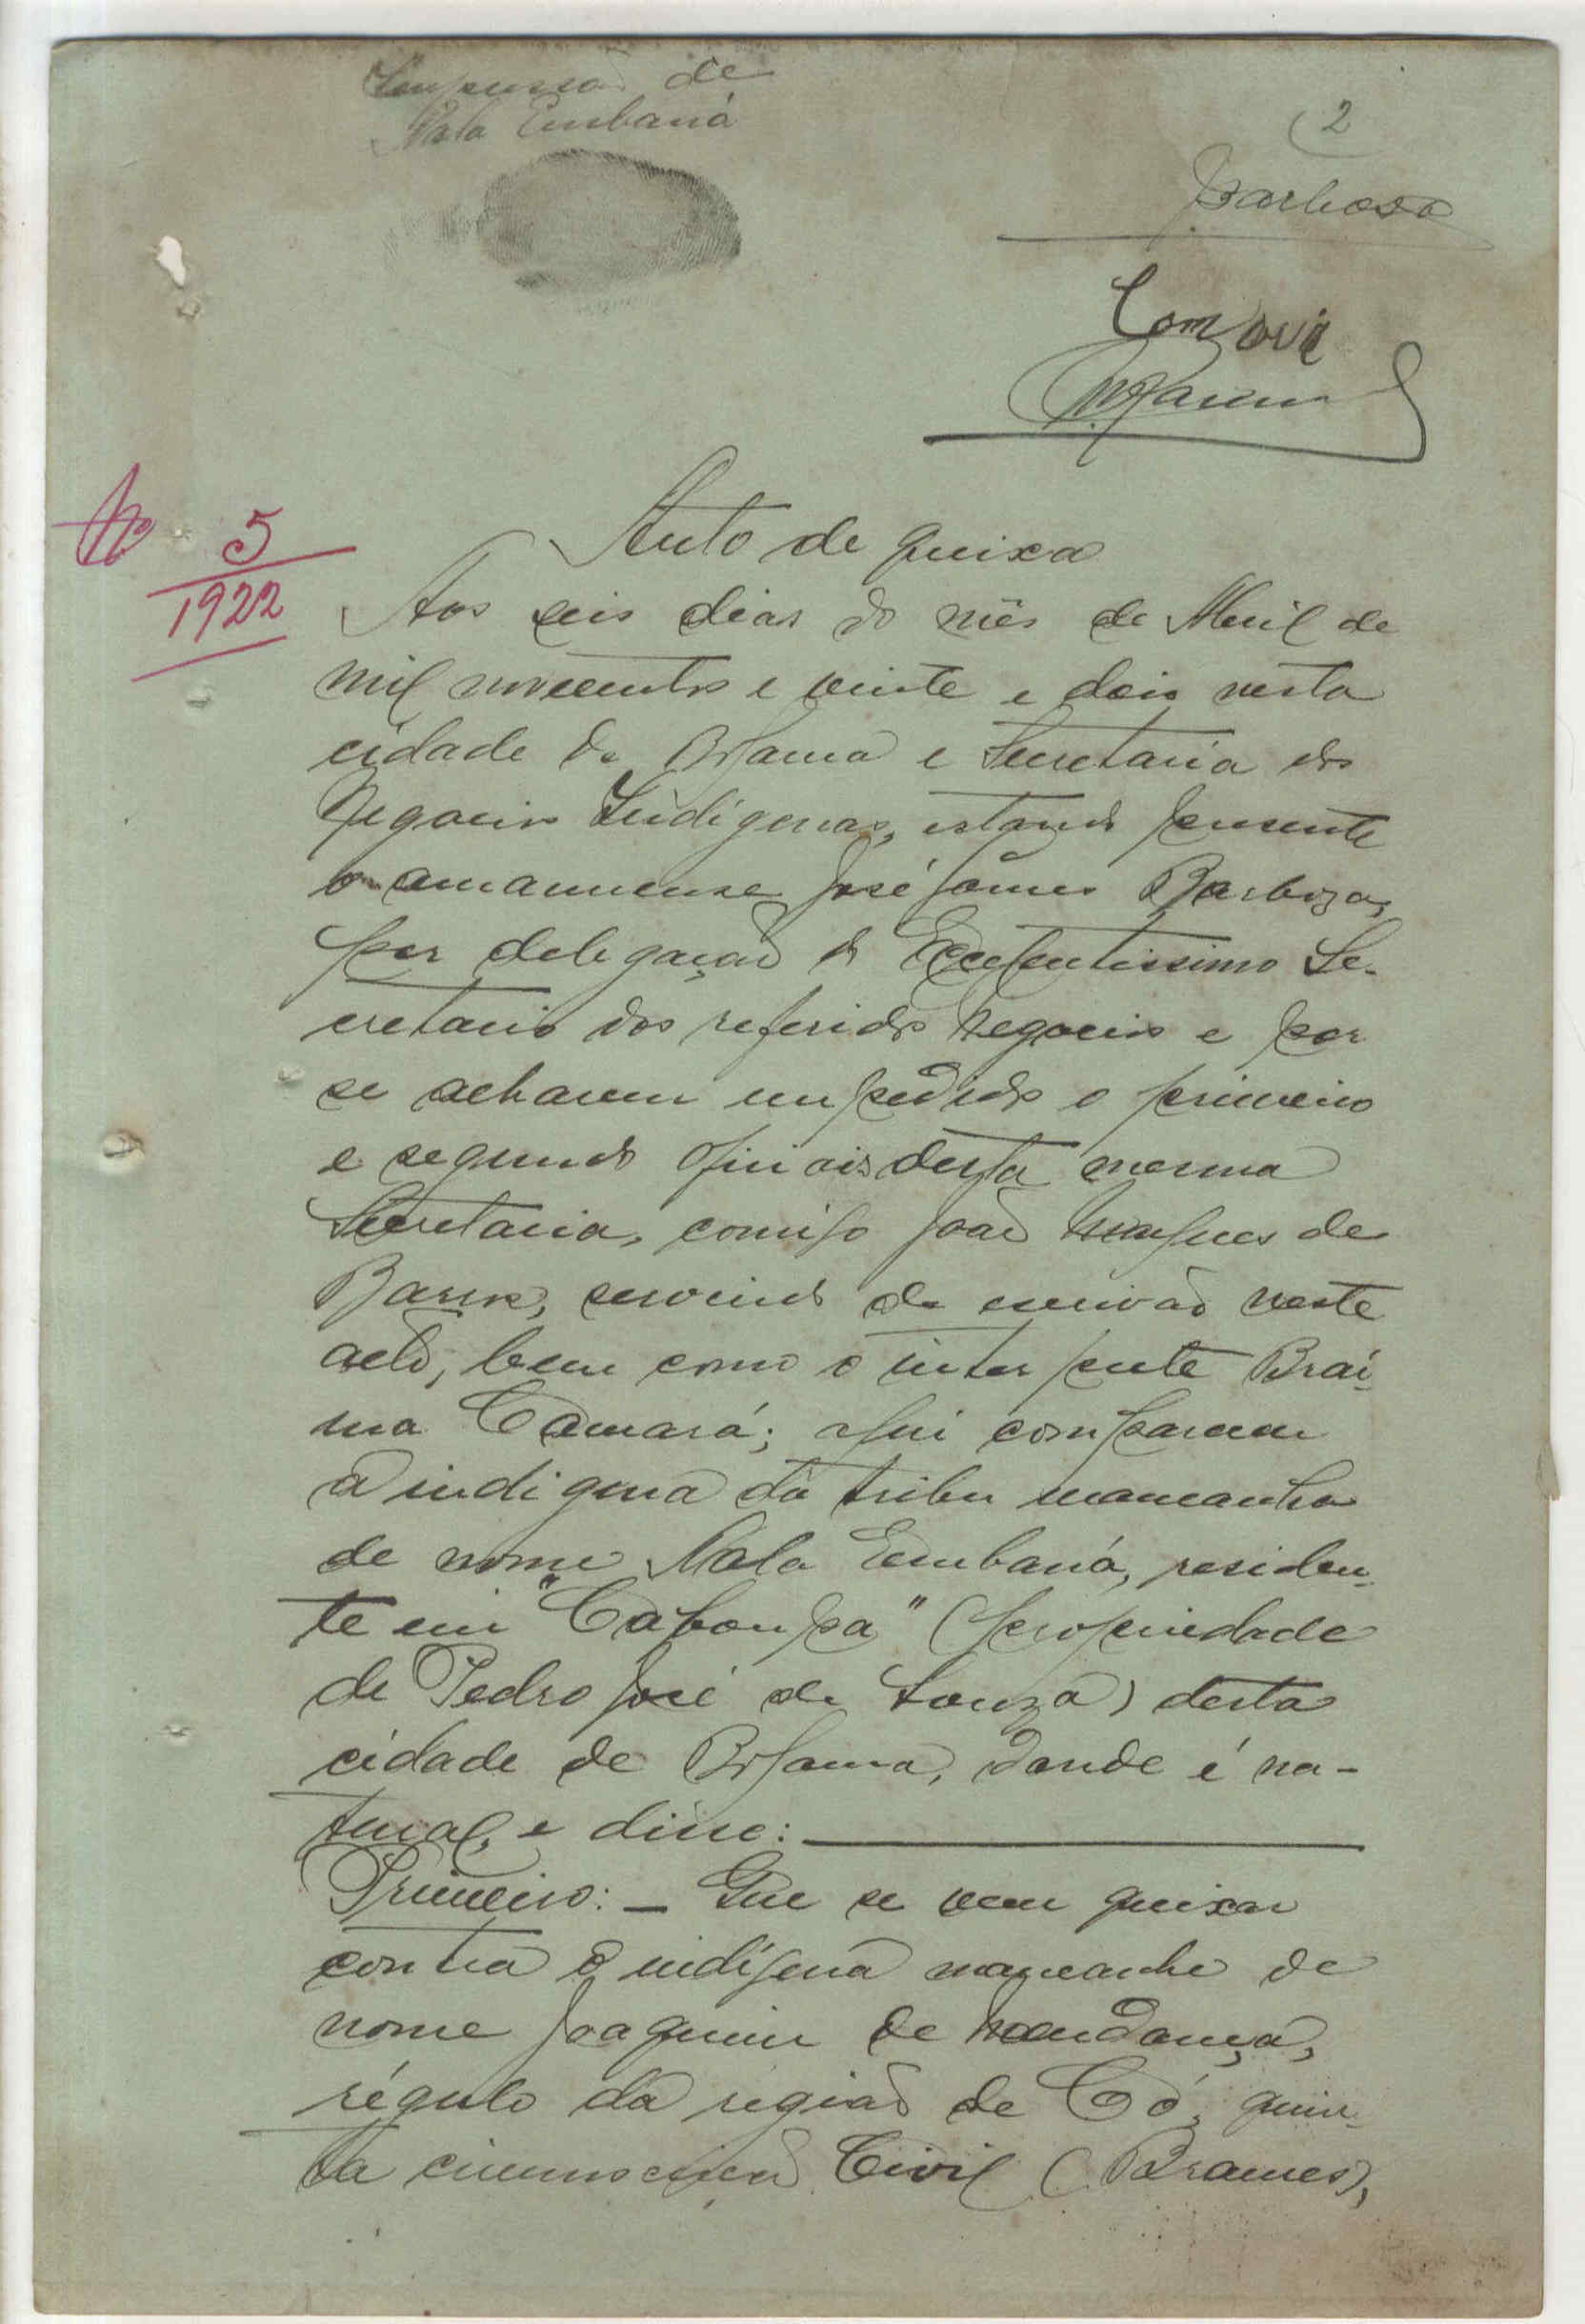 Impressão de
Nala Embaná
2
Barboza
Nº 5
1922
Auto de queixa
Aos seis dias do mês de Abril de
mil novecentos e vinte e dois nesta
cidade de Bolama e Secretaria dos
Negocios Indígenas, estando presente
o amanuense José Gomes Barboza,
por delegação do Excelentissimo Se-
cretario dos referidos Negocios e por
se acharem impedidos o primeiro
e segundo oficiais desta mesma
Secretaria, comigo João Marques de
Barros, servindo de escrivão neste
acto, bem como o interprete Braí-
ma Camará; aqui compareceu
a indigena da tribu mancanha
de nome Nala Embaná, residen-
te em "Cabompa" (propriedade
de Pedro José de Souza) desta
cidade de Bolama, donde é na-
tural, e disse:
Primeiro: — Que se vem queixar
contra o indígena mancanhe de
nome Joaquim de Mendança,
régulo da região de Có, quin-
ta circunscrição Civil (Brames),